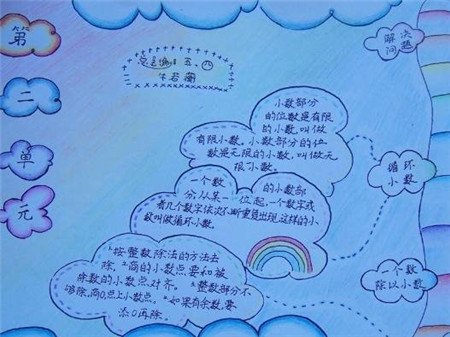 第
二
单
元
五、四
解决
问题
小数部分
的位数是有限
的小数,叫做
有限小数。小数部分的位
数是无限的小数,叫做无
限小数。
一个数的小数部
分从某一位起,一个数字或
者几个数字依次不断重复出现,这样的小
数叫做循环小数。
循环
小数
1.按整数除法的方法去
除,2.商的小数点要和被
除数的小数点对齐。3.整数部分不
够除,商0,点上小数点。4.如果有余数,要
添0再除。
一个数
除以小数